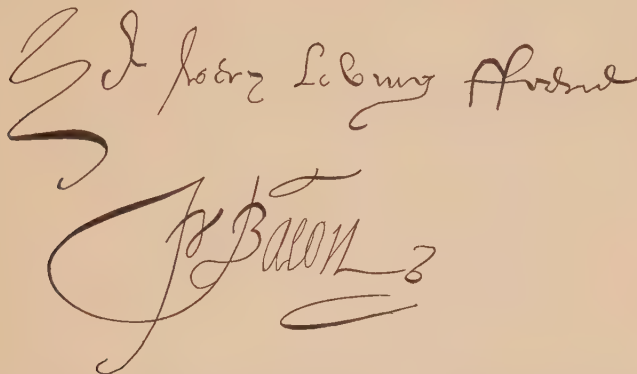 very loving ffrend
Fr Bacon